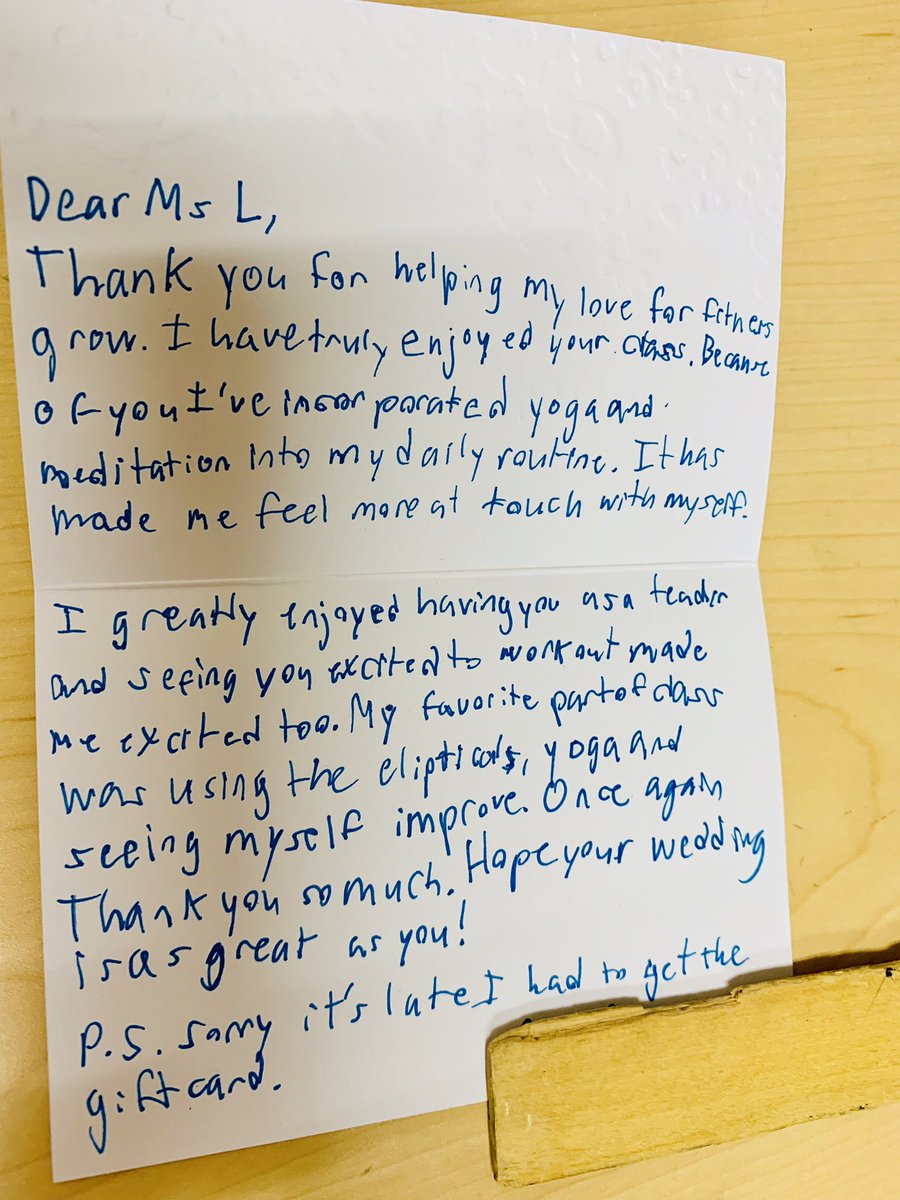 Dear Ms L,
Thank you for helping my love for fitness
grow. I have truly enjoyed your class. Because
of you I've incorporated yoga and
meditation into my daily routine. It has
made me feel more at touch with myself.
I greatly enjoyed having you as a teacher
and seeing you excited to workout made
me excited too. My favorite part of class
was using the elipticals, yoga and
seeing myself improve. Once again
Thank you so much. Hope your wedding
is as great as you!
P.S. sorry it's late I had to get the
gift card.